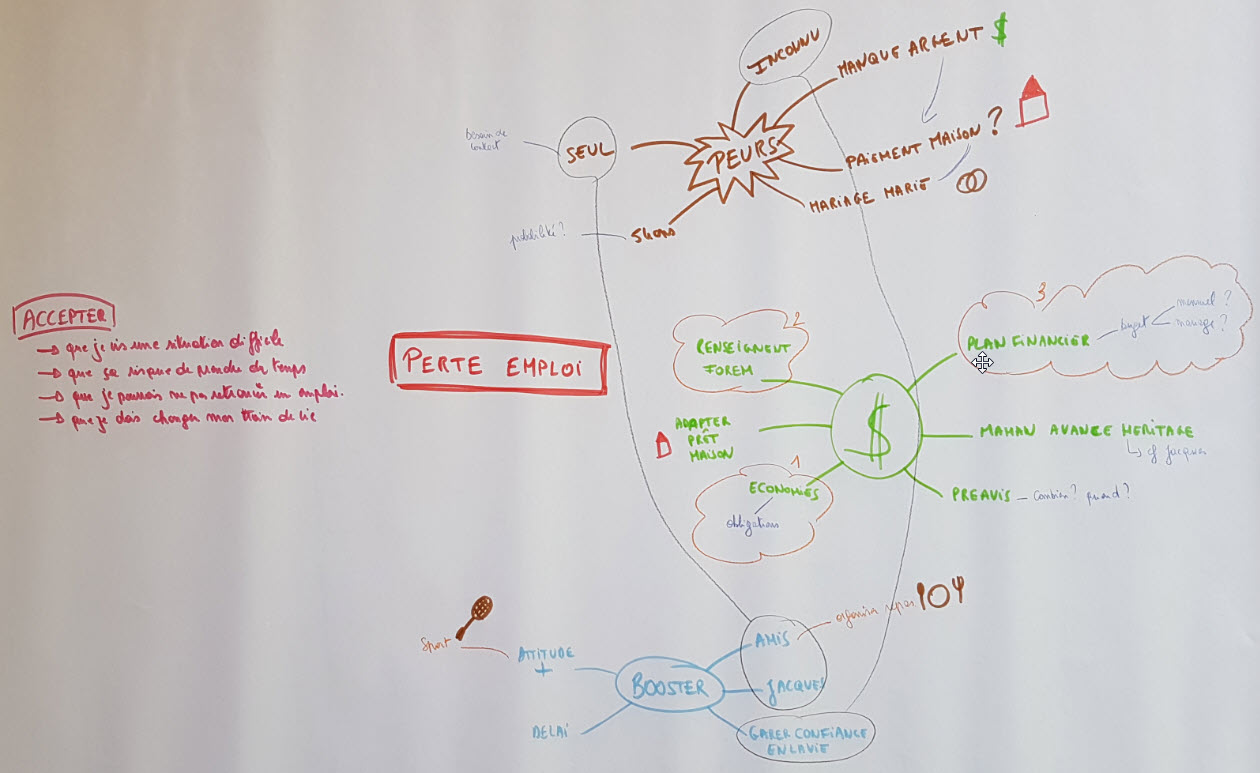 INCONNU
MANQUE ARGENT $
besoin de
contact
SEUL
PEURS
PAIEMENT MAISON ?
MARIAGE MARIE
probabilité ?
ACCEPTER
→ que je vis une situation difficile
→ que ça risque de prendre du temps
→ que je pourrais ne pas retrouver un emploi.
→ que je dois changer mon train de vie
PERTE EMPLOI
2
RENSEIGNENT
FOREM
3
PLAN FINANCIER
budget
mensuel ?
mariage ?
$
ADAPTER
PRÊT
MAISON
MAMAN AVANCE HERITAGE
↳ cf Jacques
1
ECONOMIES
obligations
PREAVIS — combien ? quand ?
Sport
ATTITUDE
+
BOOSTER
AMIS
organiser repas
JACQUES
DELAI
GARER CONFIANCE
EN LA VIE